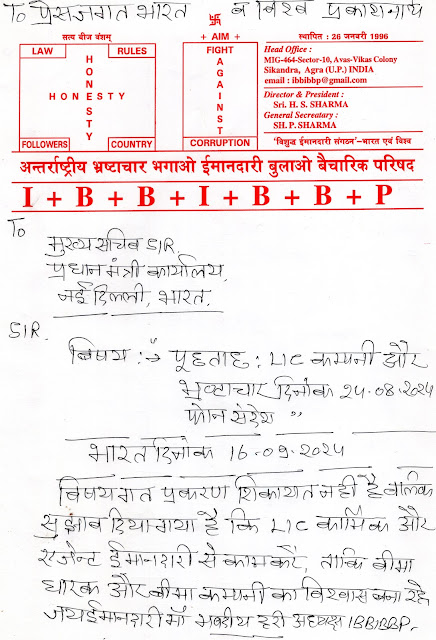 To प्रेसजगत भारत व विश्व प्रकाशनार्थ
卐
सत्य बीज वंशम्
LAW
RULES
HONESTY
HONESTY
FOLLOWERS
COUNTRY
+ AIM +
FIGHT
AGAINST
CORRUPTION
स्थापित : 26 जनवरी 1996
Head Office :
MIG-464-Sector-10, Avas-Vikas Colony
Sikandra, Agra (U.P.) INDIA
email : ibbibbp@gmail.com
Director & President :
Sri. H. S. SHARMA
General Secreatary :
SH. P. SHARMA
'विशुद्ध ईमानदारी संगठन'-भारत एवं विश्व
अन्तर्राष्ट्रीय भ्रष्टाचार भगाओ ईमानदारी बुलाओ बैचारिक परिषद
I + B + B + I + B + B + P
To
मुख्य सचिव SIR.
प्रधान मंत्री कार्यालय,
नई दिल्ली, भारत.
SIR.
विषय :-> पूछताछ : LIC कम्पनी और
भ्रष्टाचार दिनांक 24-08-2024
फोन संदेश "
भारत दिनांक 16-09-2024
विषयगत प्रकरण शिकायत नहीं है बल्कि
सुझाव दिया गया है कि LIC कार्मिक और
एजेन्ट ईमानदारी से काम करें, ताकि बीमा
धारक और बीमा कम्पनी का विश्वास बना रहे,
जय ईमानदारी माँ भवदीय हरी अध्यक्ष IBBIBBP.